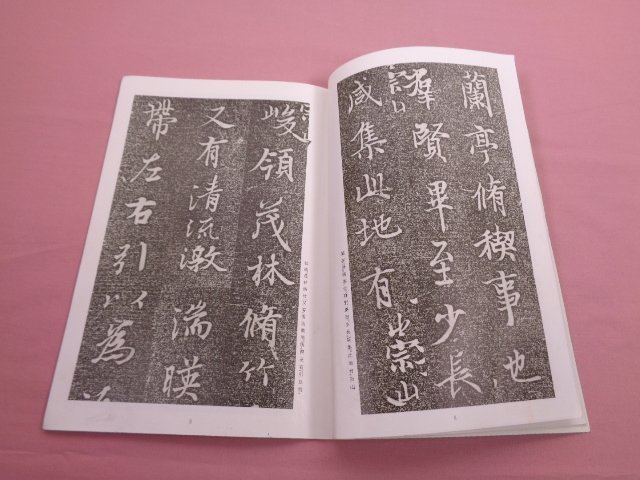 蘭亭脩稧事也
羣賢畢至少長
咸集此地有崇山
峻領茂林脩竹
又有清流激湍暎
帶左右引以為流